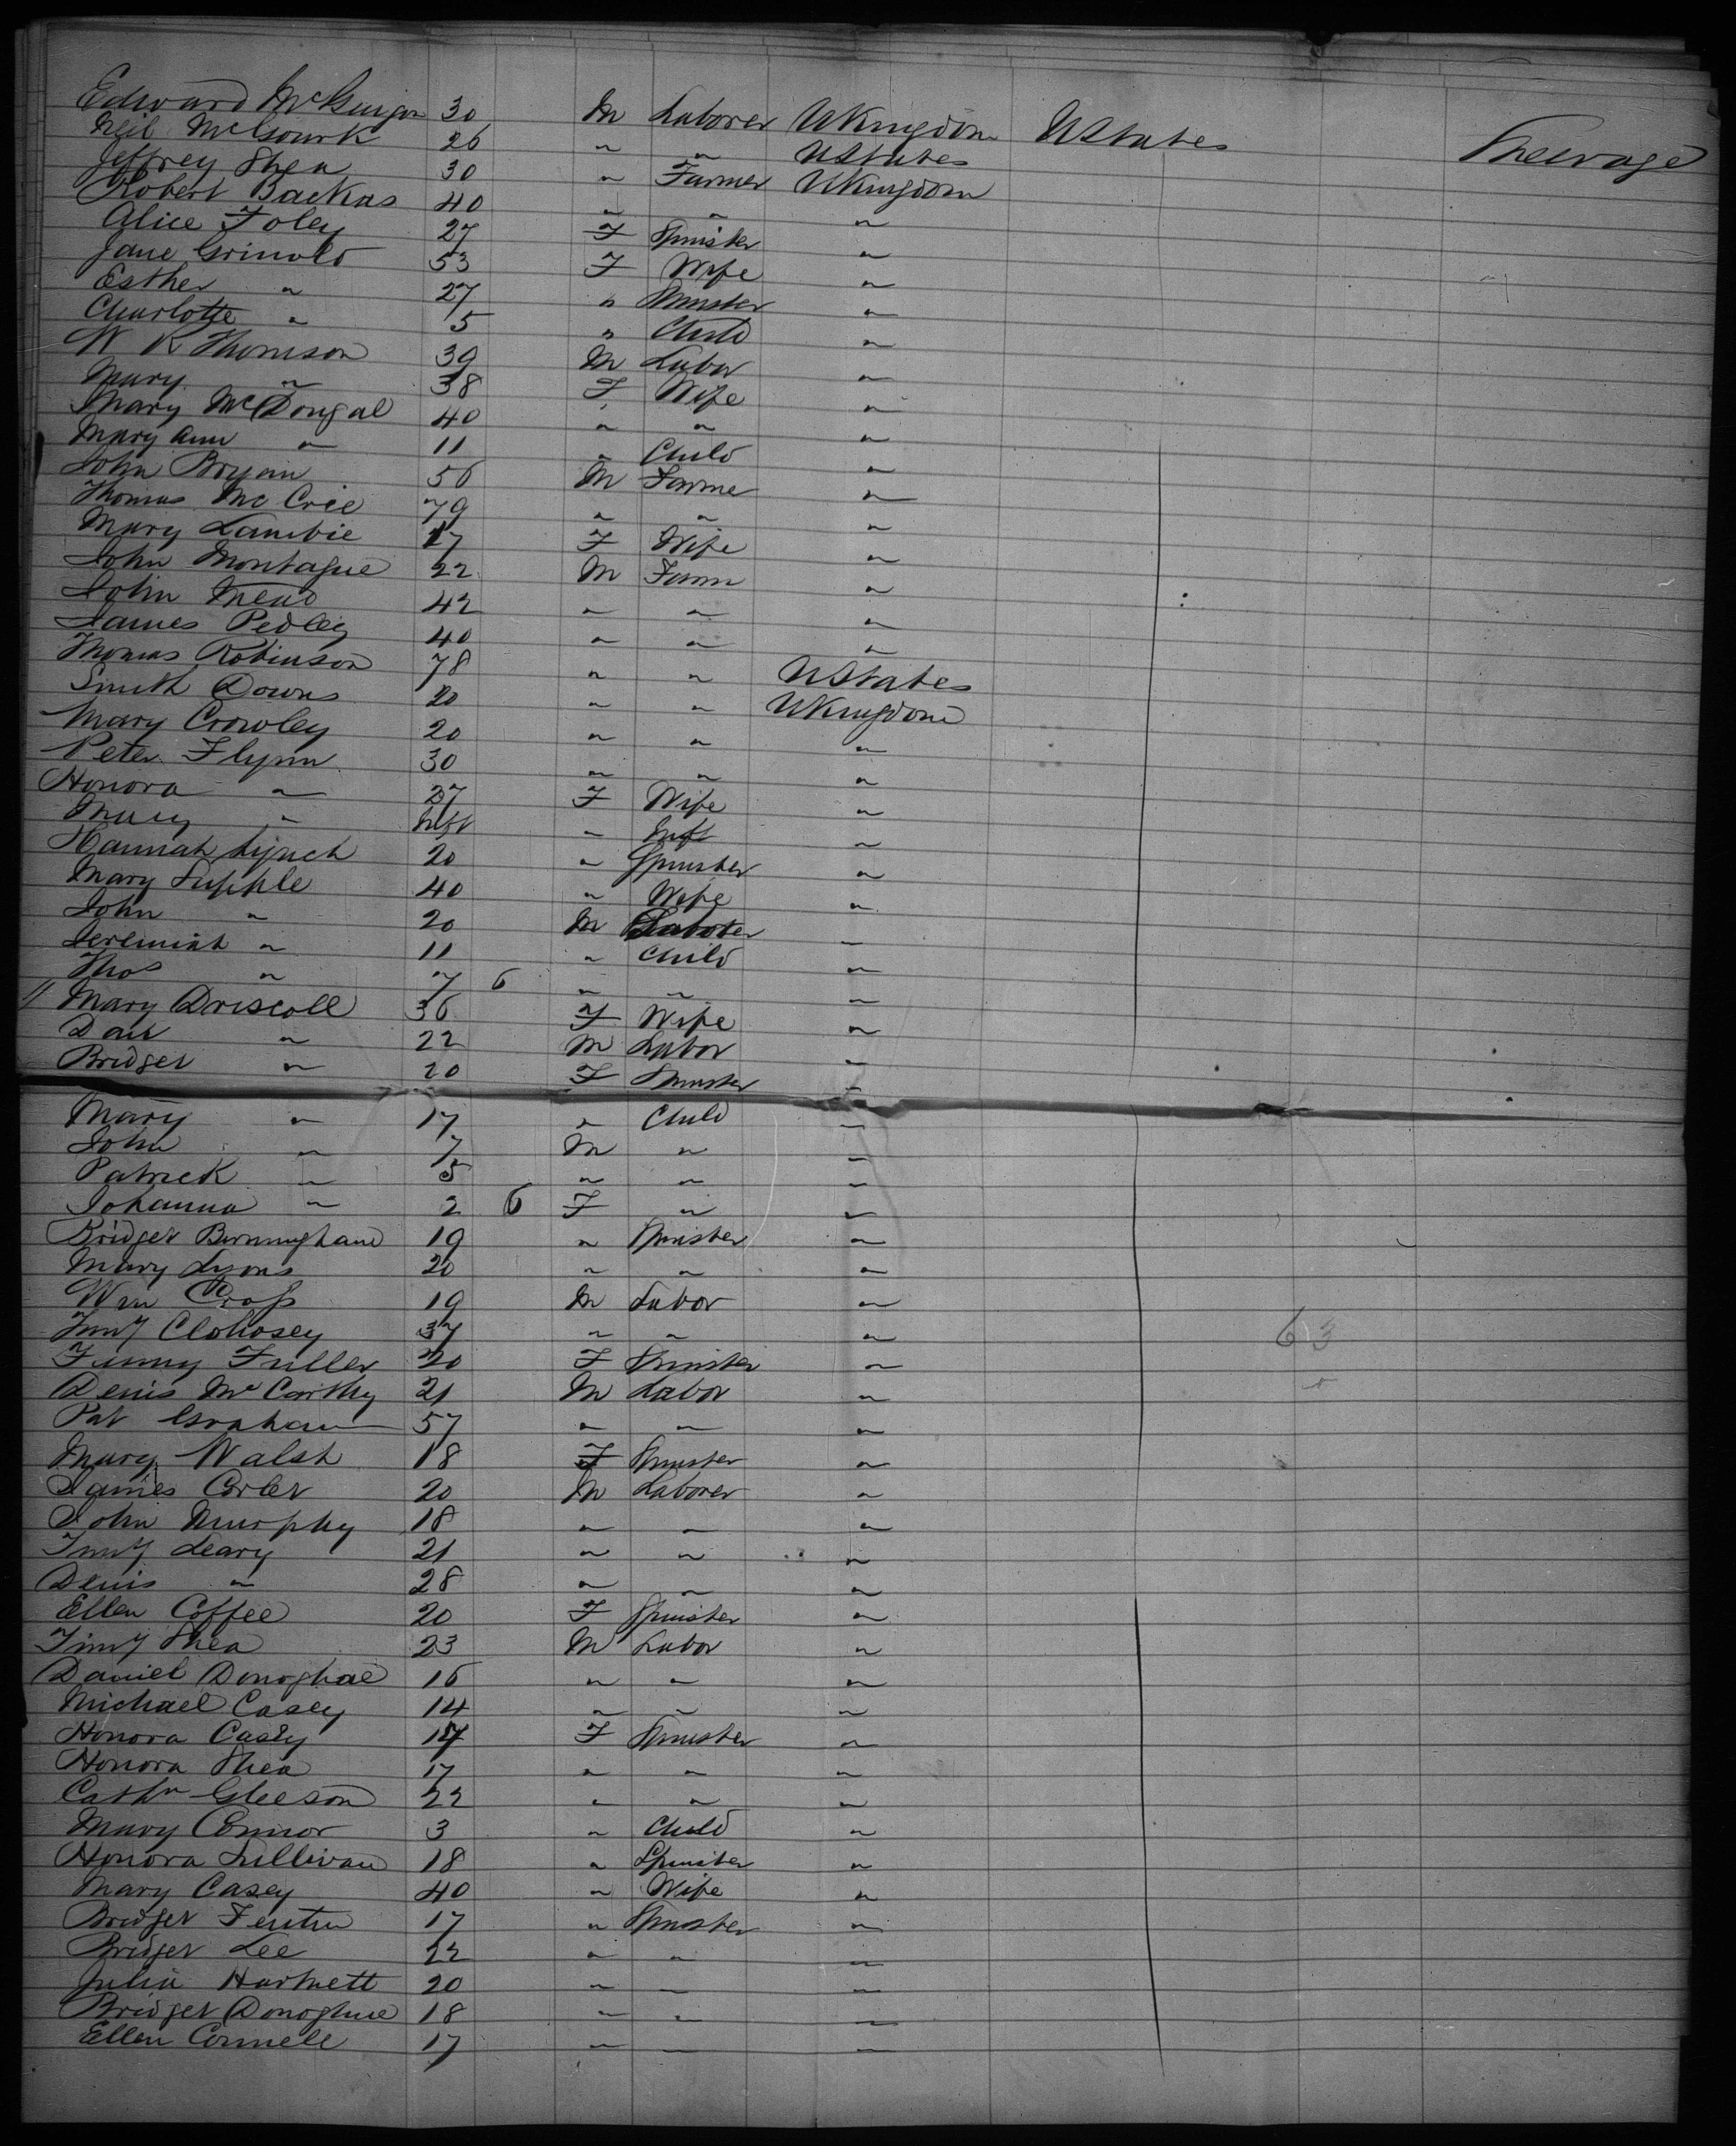 Edward McGuigan 30 M Laborer UKingdom UStates Steerage
Neil McGourk 26 " " UStates
Jeffrey Shea 30 " Farmer UKingdom
Robert Backas 40 " " "
Alice Foley 27 F Spinster "
Jane Grinold 53 F Wife "
Esther " 27 " Spinster "
Charlotte " 5 " Child "
W R Thomson 39 M Labor "
Mary " 38 F Wife "
Mary McDougal 40 " " "
Mary Ann " 11 " Child "
John Bryan 56 M Farme "
Thomas McCrie 79 " " "
Mary Lambie 17 F Wife "
John Montague 22 M Farm "
John Mead 42 " " "
James Pedley 40 " " "
Thomas Robinson 78 " " UStates
Smith Downs 20 " " UKingdom
Mary Crowley 20 " " "
Peter Flynn 30 " " "
Honora " 27 F Wife "
Mary " Inft " Inft "
Hannah Lynch 20 " Spinster "
Mary Supple 40 " Wife "
John " 20 M Laborer "
Jeremiah " 11 " Child "
Thos " 7 6 " " "
// Mary Driscoll 36 F Wife "
Dan " 22 M Labor "
Bridget " 20 F Spinster "
Mary " 17 " Child "
John " 7 M " "
Patrick " 5 " " "
Johanna " 2 6 F " "
Bridget Birmingham 19 " Spinster "
Mary Lyons 20 " " "
Wm Cross 19 M Labor "
Timy Clohosey 37 " " " 63
Fanny Fuller 20 F Spinster "
Denis McCarthy 21 M Labor "
Pat Graham 57 " " "
Mary Walsh 18 F Spinster "
James Corlet 20 M Laborer "
John Murphy 18 " " "
Timy Leary 21 " " "
Denis " 28 " " "
Ellen Coffee 20 F Spinster "
Timy Shea 23 M Labor "
Daniel Donoghae 16 " " "
Michael Casey 14 " " "
Honora Casey 17 F Spinster "
Honora Shea 17 " " "
Cathn Gleeson 22 " " "
Mary Connor 3 " Child "
Honora Sullivan 18 " Spinster "
Mary Casey 40 " Wife "
Bridget Fenton 17 " Spinster "
Bridget Lee 22 " " "
Julia Hartnett 20 " " "
Bridget Donoghue 18 " " "
Ellen Connell 17 " " "